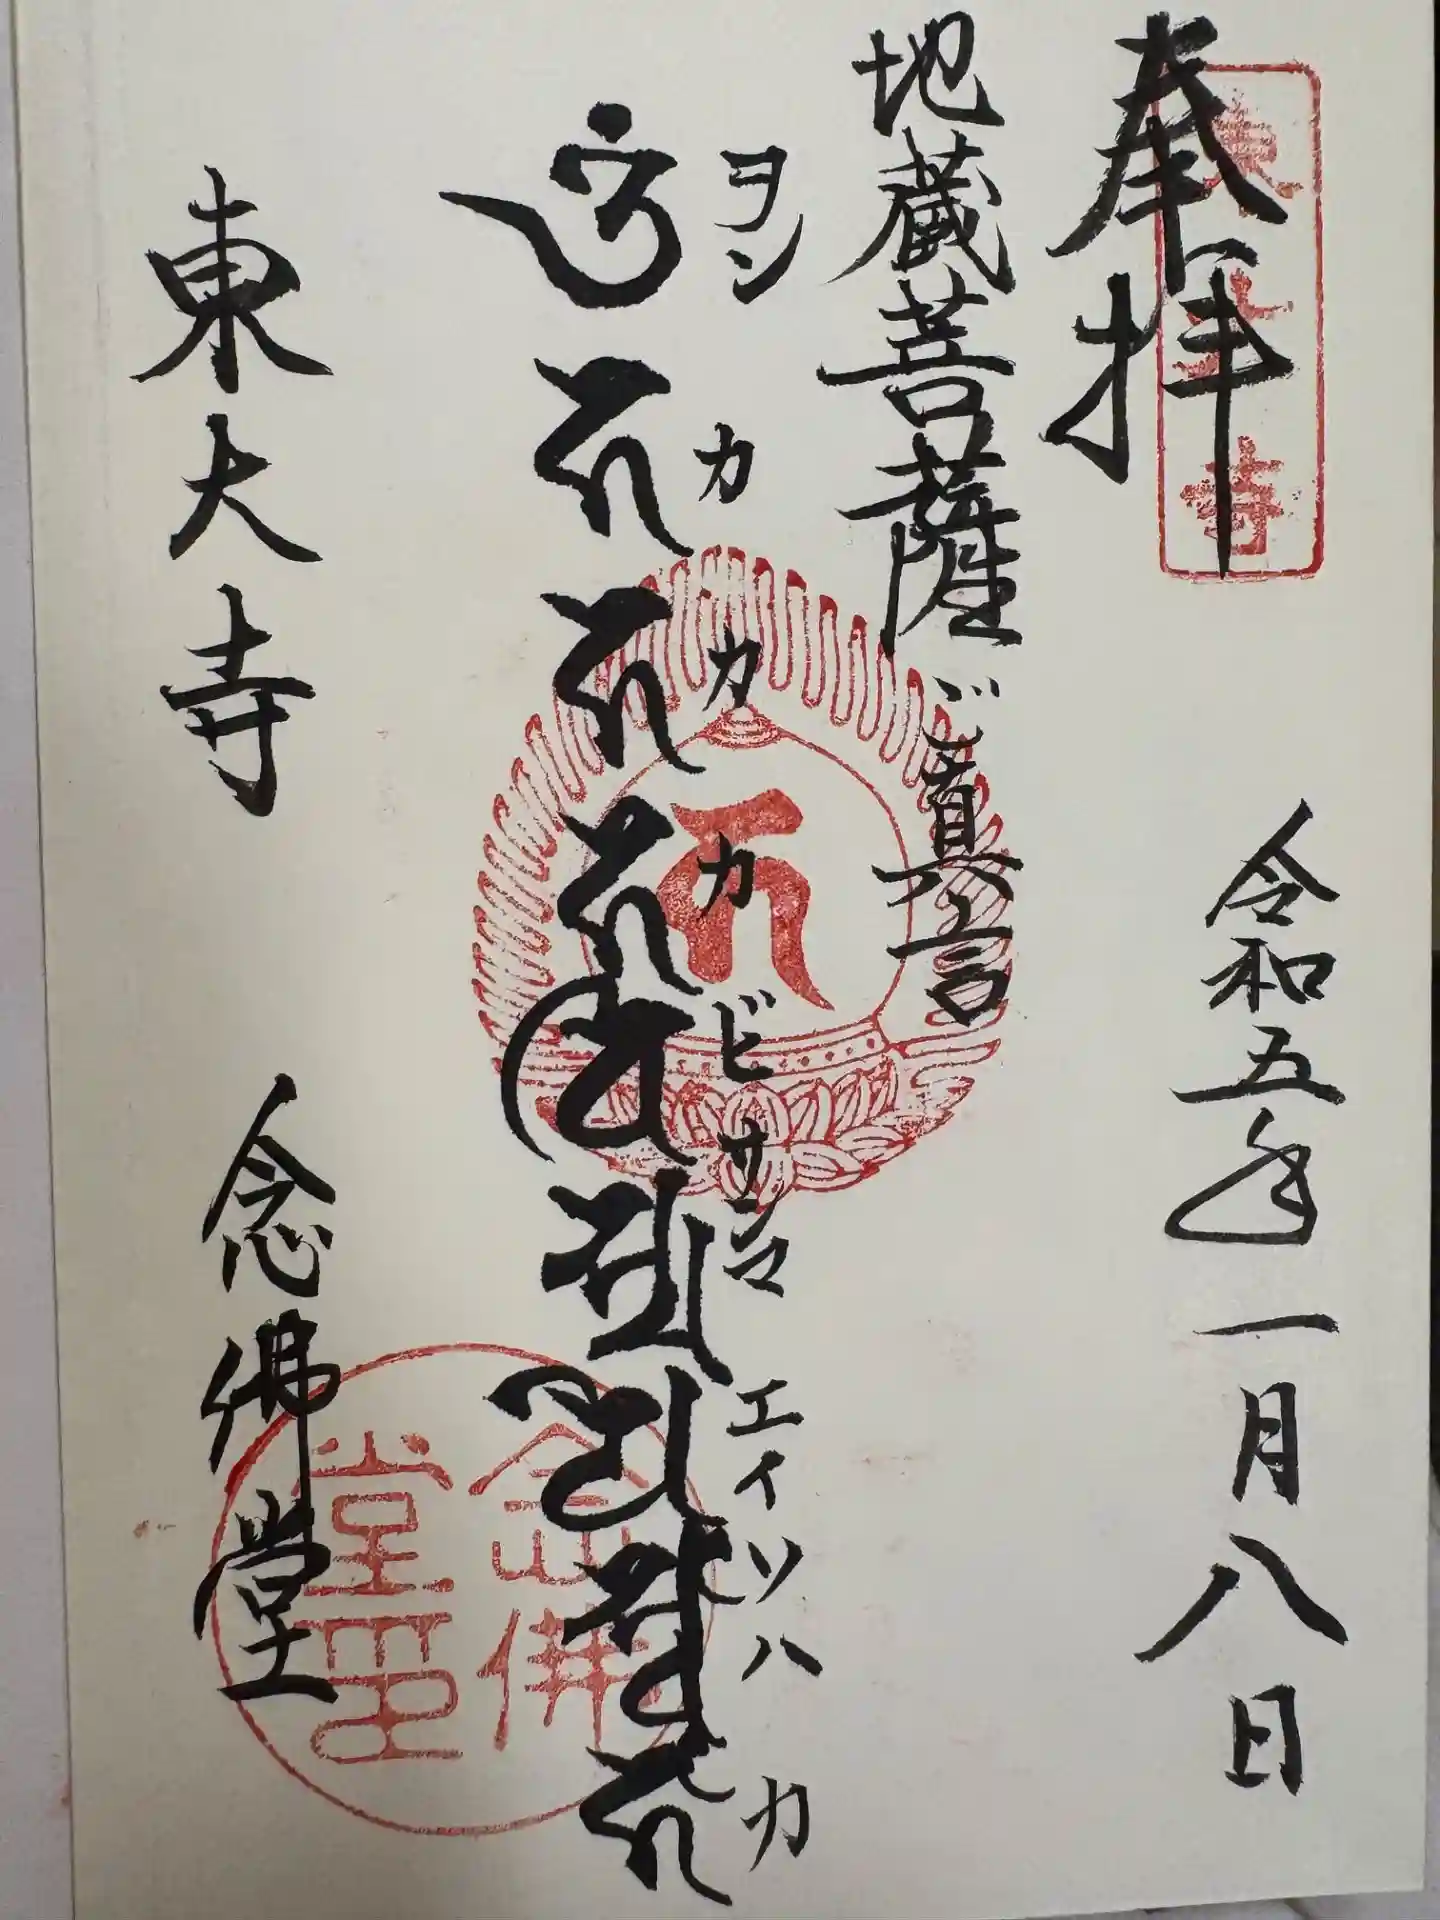 奉拝
東大寺
令和五年一月八日
地蔵菩薩ご真言
ヲン カ カ カ ビサンマ エイ ソハ カ
東大寺 念佛堂
念佛
堂印